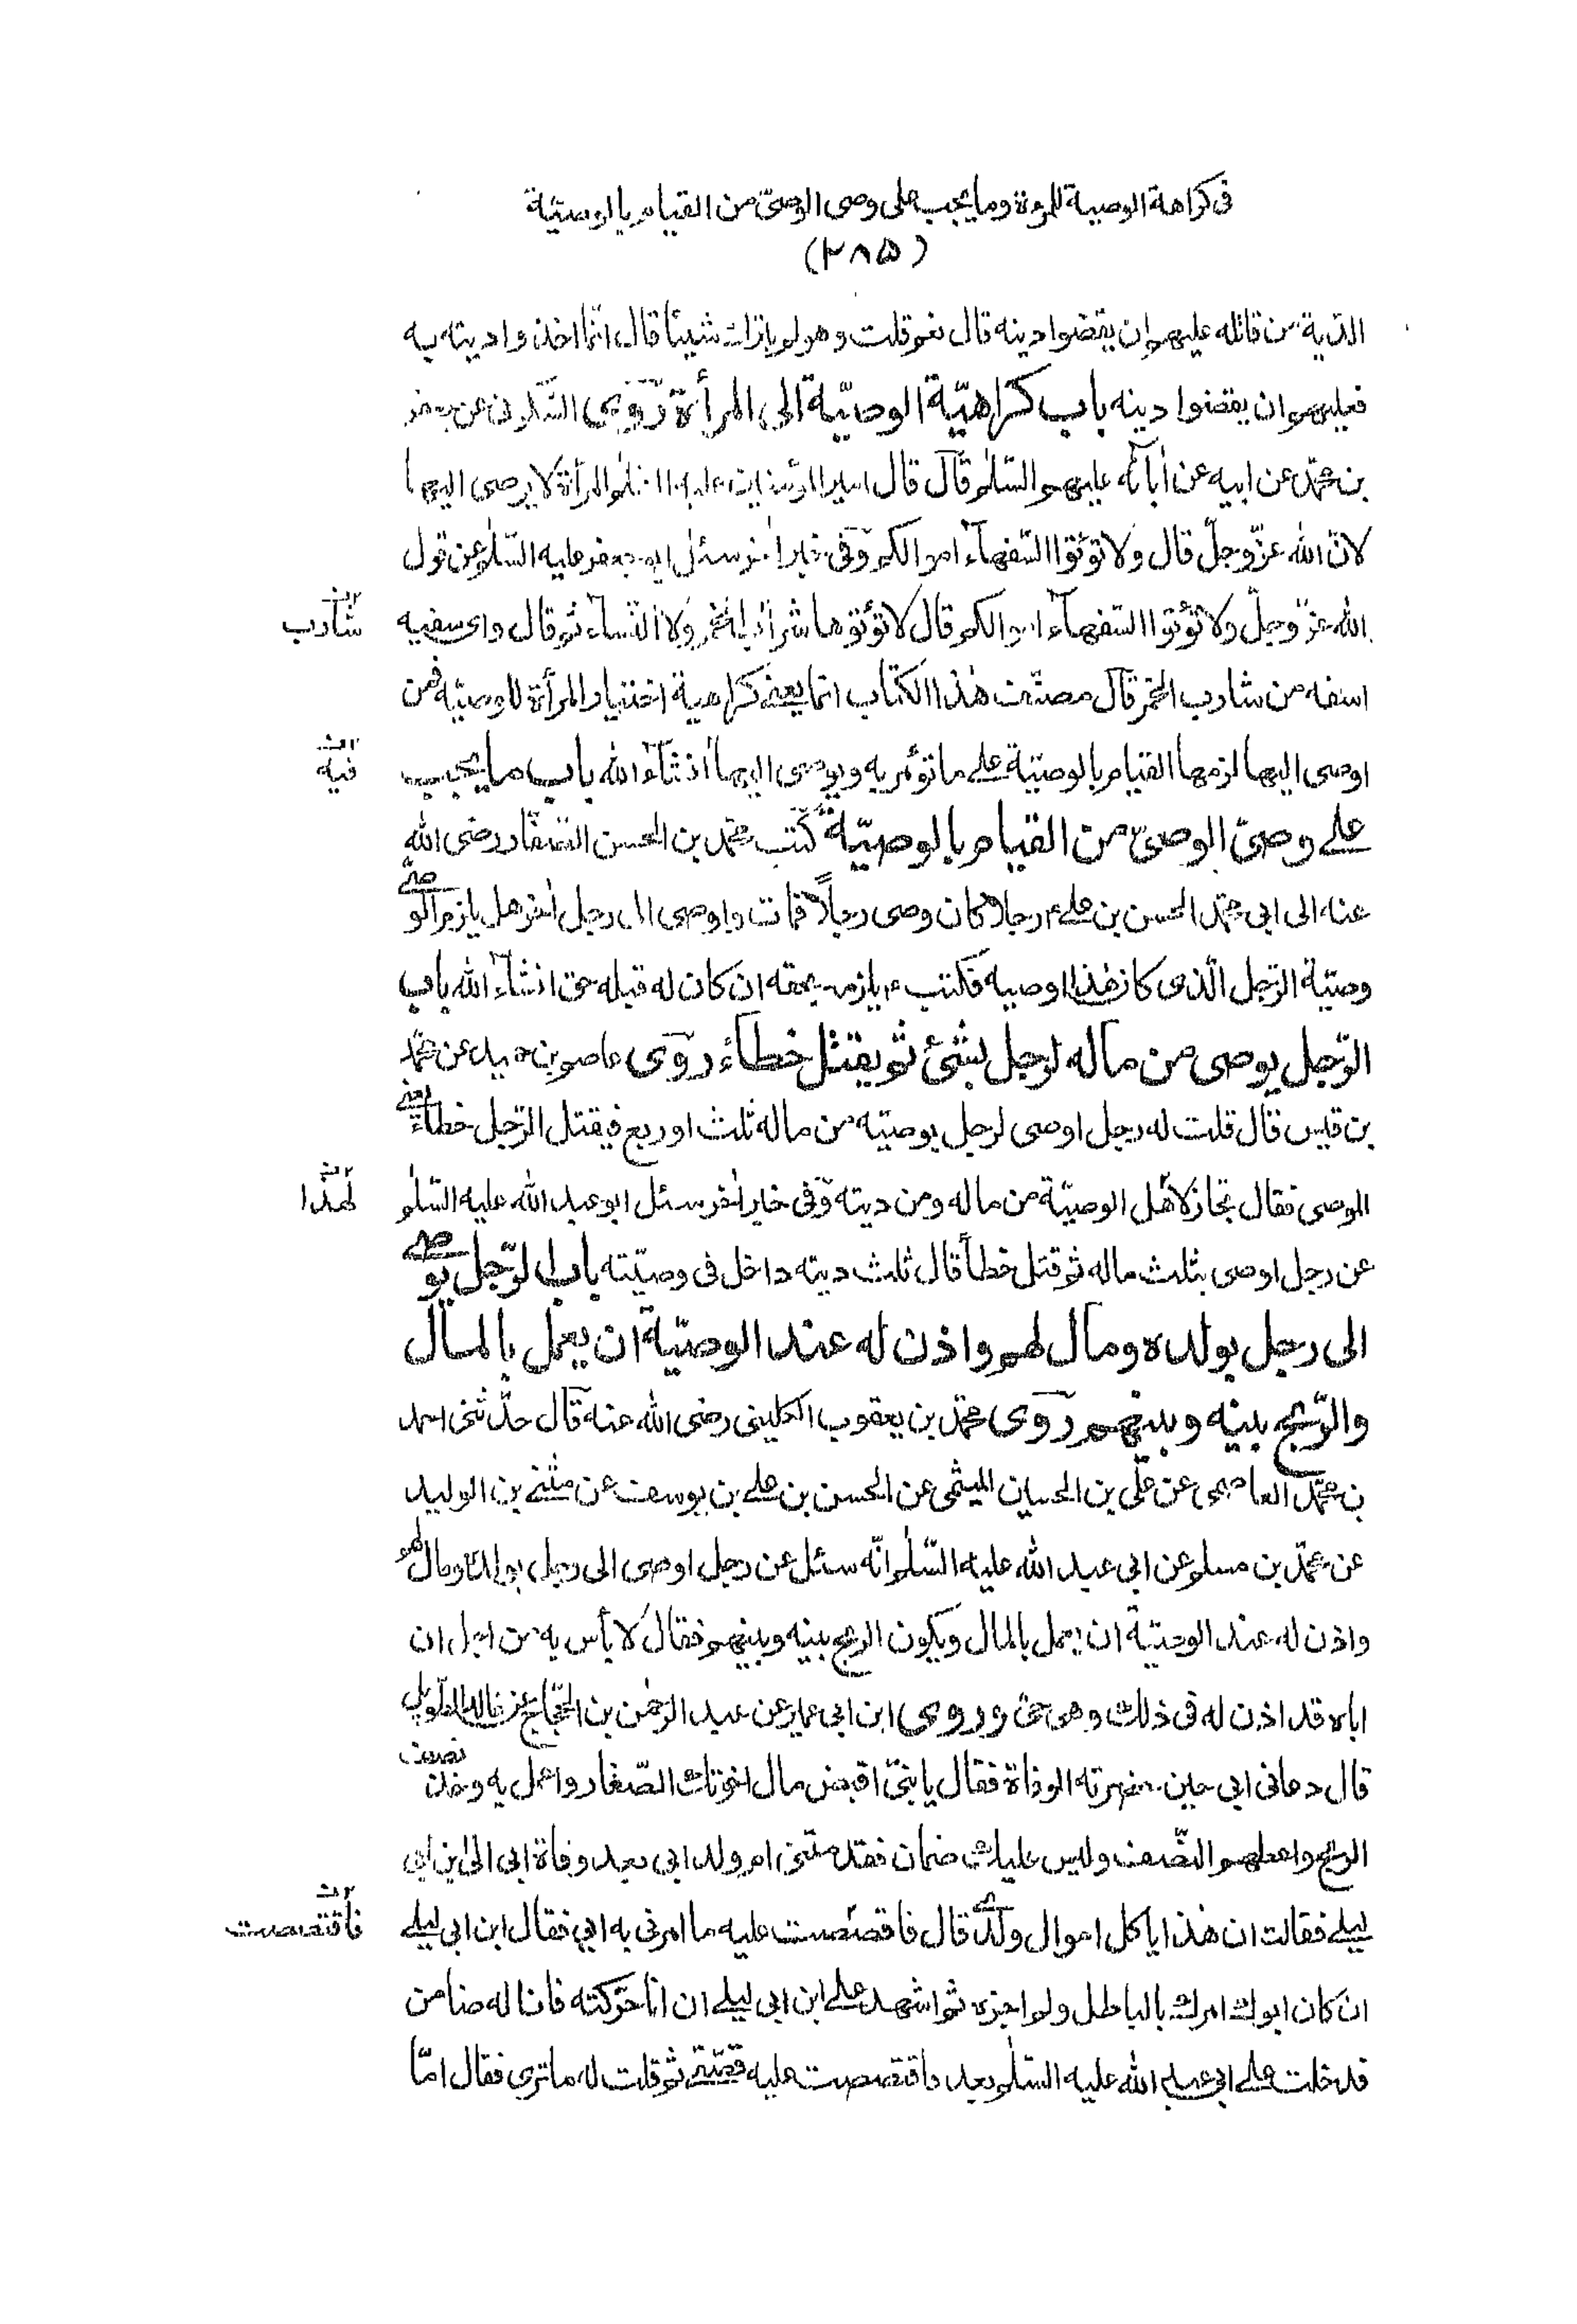 فی كراهة الوصية للمرءة وما يجب على وصی الوصیّ من القيام بالوصيّة
(٢٨۵)
الدّية من قاتله عليهم ان يقضوا دينه قال نعم قلت وهو لم يترك شيئا قال انّما اخذوا ديته به
فعليهم ان يقضوا دينه باب كراهيّة الوصيّة الى المرأة رَوَى السّكونی عن جعفر
بن محمّد عن ابيه عن اٰبائه عليهم السّلٰم قالَ قال امير المؤمنين عليه السّلٰم المرأة لا يوصى اليها
لانّ الله عزّ وجلّ قال ولا تؤتوا السّفهاۤء اموالكم وَفی خبر اٰخر سئل ابو جعفر عليه السّلٰم عن قول
الله عزّ وجلّ ولا تؤتوا السّفهاۤء اموالكم قال لا تؤتوها شرّاب الخمر ولا النّساۤء ثم قال وای سفيه
شارب
اسفه من شارب الخمر قالَ مصنّف هٰذا الكتاب انما يعنے كراهية اختيار المرأة للوصيّه فمن
اوصى اليها لزمها القيام بالوصيّة علے ما تؤمر به ويوصى اليها انشاۤء الله باب ما يجب
فيه
علے وصیّ الوصیّ من القيام بالوصيّة كتب محمّد بن الحسن الصّفّار رضی الله
عنه الى ابی محمّد الحسن بن علے ع رجل كان وصی رجل فمات واوصى الى رجل اٰخر هل يلزم الوصی
وصيّة الرّجل الّذی كان هٰذا وصيه فكتب ع يلزمه بحقه ان كان له قبله حق انشاۤء الله باب
الرّجل يوصی من ماله لرجل بشئ ثم يقتل خطاء روَى عاصم بن حميد عن محمّد
بن قيس قال قلت له رجل اوصى لرجل بوصيّه من ماله ثلث او ربع فيقتل الرّجل خطاء يعنے
الموصی فقال تجاز لاهل الوصيّة من ماله ومن ديته وَفی خبر اٰخر سئل ابو عبد الله عليه السّلٰم
لهذا
عن رجل اوصى بثلث ماله ثم قتل خطأ قال ثلث ديته داخل فی وصيّته باب الرّجل يوصے
الى رجل بولده ومال لهم واذن له عند الوصيّة ان يعمل بالمال
والرّبح بينه وبينهم روَى محمّد بن يعقوب الكلينی رضی الله عنه قالَ حدّثنی احمد
بن محمّد العاصمی عن علّی بن الحسين الميثمی عن الحسن بن علے بن يوسف عن مثنے بن الوليد
عن محمّد بن مسلم عن ابی عبد الله عليه السّلٰم انّه سئل عن رجل اوصى الى رجل بولده ومال لهم
واذن له عند الوصيّة ان يعمل بالمال ويكون الربح بينه وبينهم فقال لا بأس به من اجل ان
اباه قد اذن له فی ذلك وهو حیّ وروى ابن ابی عمير عن عبد الرحمٰن بن الحجّاج عن خالد الطّويل
قال دعانی ابی حين حضرته الوفاة فقال يا بنیّ اقبض مال اخوتك الصّغار واعمل به وخذ نصف
الربح واعطهم النّصف وليس عليك ضمان فقدمتنی ام ولد ابی بعد وفاة ابی الى ابن ابی
ليلے فقالت ان هٰذا ياكل اموال ولدی قال فاقصصت عليه ما امرنی به ابی فقال ابن ابی ليلے
فاقتصصت
ان كان ابوك امرك بالباطل ولم اجزه ثم اشهد علے ابن ابی ليلے ان انا حرّكته فانا له ضامن
فدخلت علے ابی عبد الله عليه السّلٰم بعد فاقتصصت عليه قصّتے ثم قلت له ما ترى فقال امّا